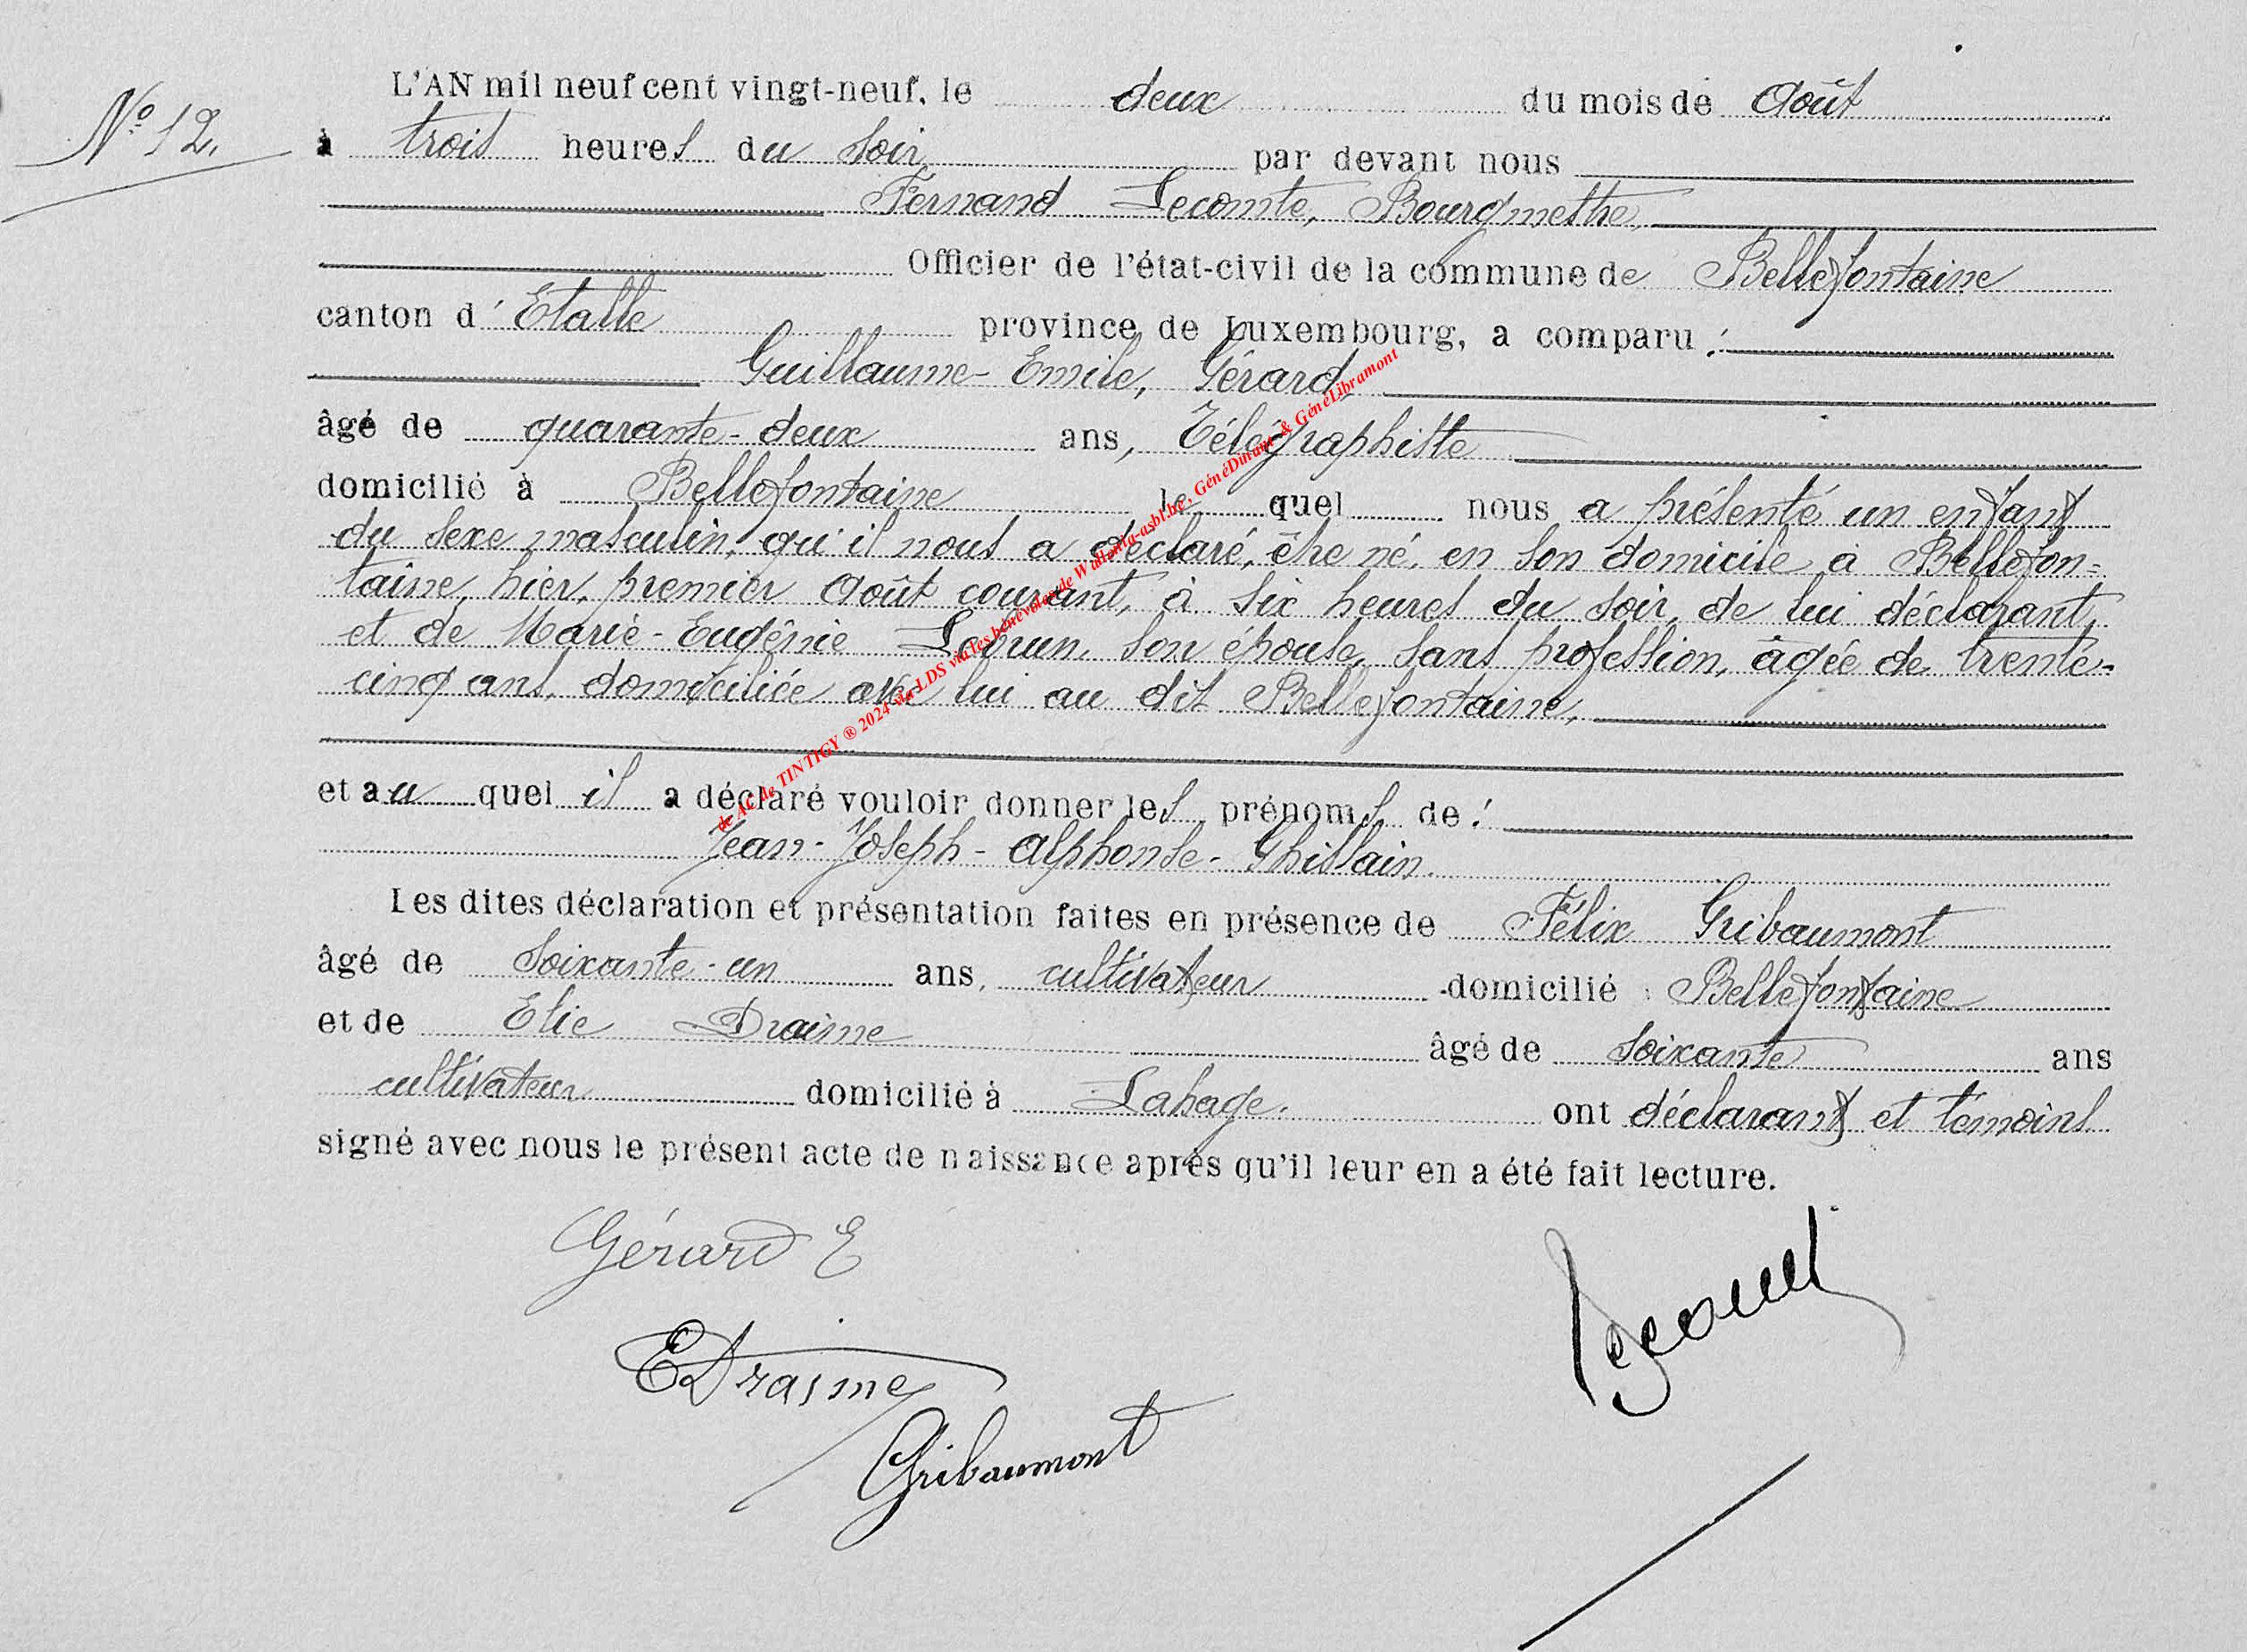 L'AN mil neuf cent vingt-neuf, le deux du mois de Août
N° 12.
à trois heures du soir, par devant nous
Fernand Lecomte, Bourgmestre,
Officier de l'état-civil de la commune de Bellefontaine
canton d'Etalle province de Luxembourg, a comparu :
Guillaume-Emile, Gérard,
âgé de quarante-deux ans, Télégraphiste
domicilié à Bellefontaine lequel nous a présenté un enfant
du sexe masculin, qu'il nous a déclaré, être né, en son domicile à Bellefon=
taine, hier, premier Août courant, à six heures du soir, de lui déclarant,
et de Marie-Eugénie son épouse, sans profession, âgée de trente-
cinq ans, domiciliée avec lui au dit Bellefontaine,
et au quel il a déclaré vouloir donner les prénoms de :
Jean-Joseph-Alphonse-Ghislain.
Les dites déclaration et présentation faites en présence de Félix Gribaumont
âgé de soixante-un ans, cultivateur domicilié Bellefontaine
et de Elie Draime âgé de soixante ans
cultivateur domicilié à Lahage. ont déclarant et témoins
signé avec nous le présent acte de naissance après qu'il leur en a été fait lecture.
Gérard E
E Draime
Gribaumont
de AC de TINTIGY ® 2024 via LDS via les bénévoles de Wallonia-asbl.be, GénéDurant & GénéLibramont